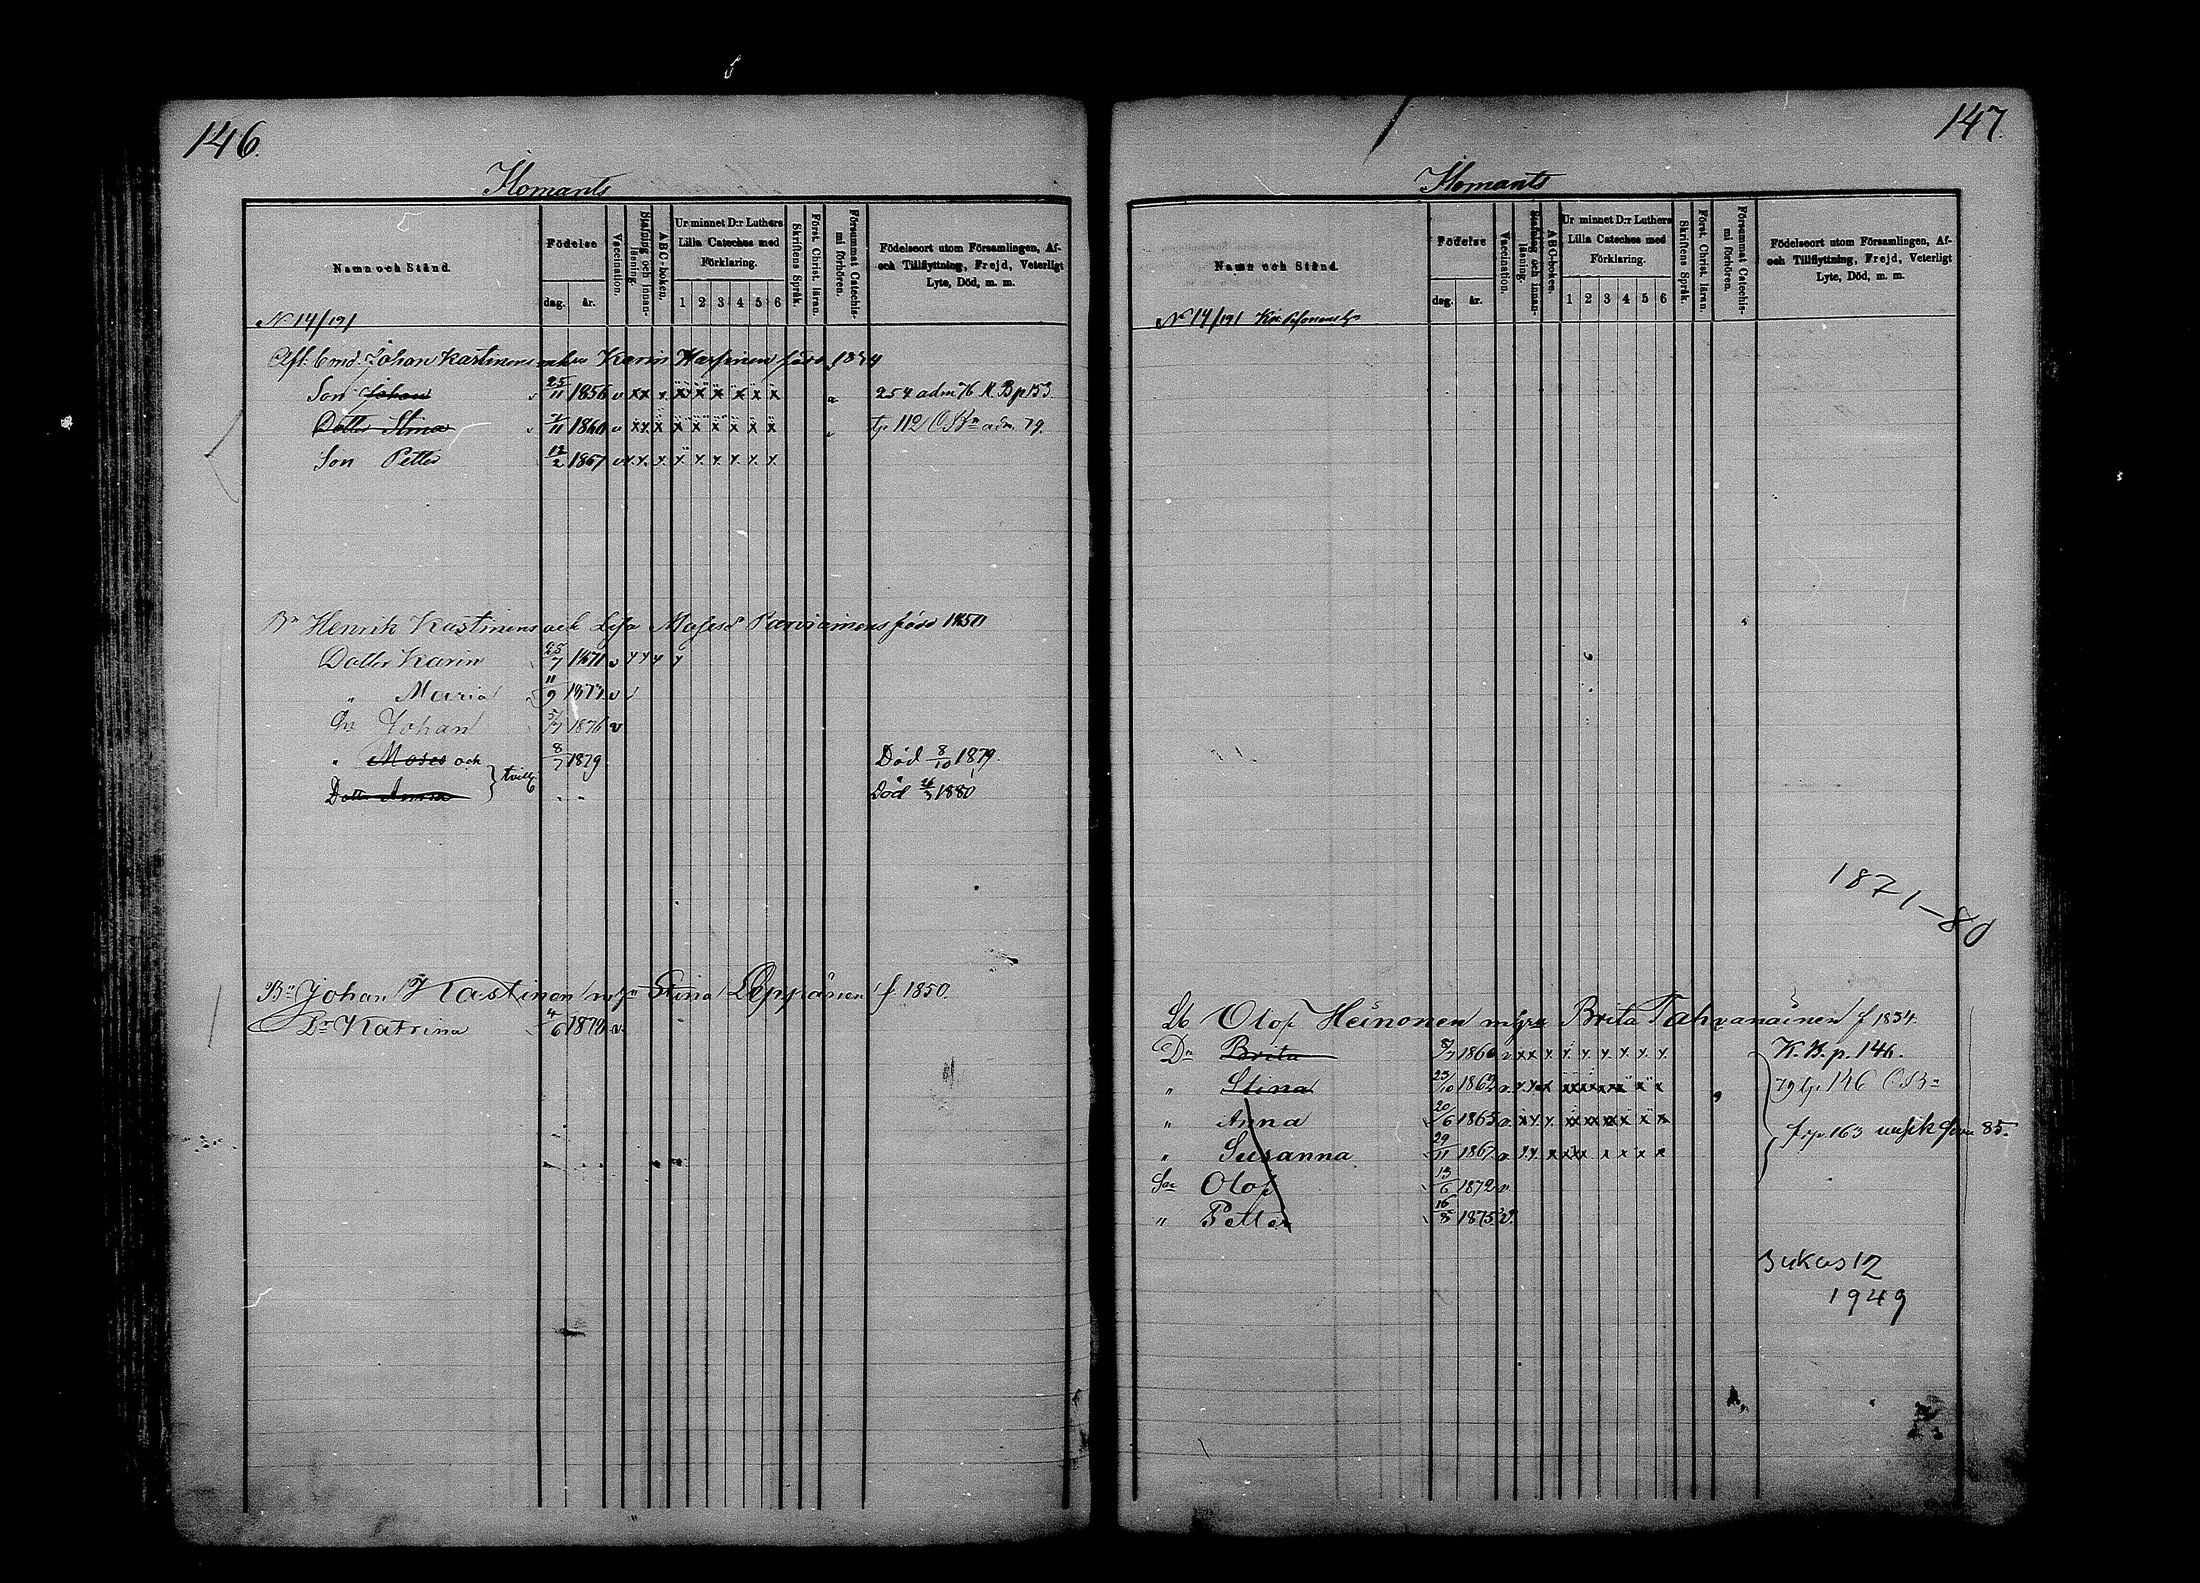 146.
Ilomants
Namn och Stånd.
Födelse
dag. år.
Vaccination.
Stafning och innanläsning.
ABC-boken.
Ur minnet D:r Luthers Lilla Cateches med Förklaring.
1 2 3 4 5 6
Skriftens Språk.
Först. Christ. läran.
Försummat Catechismi förhören.
Födelseort utom Församlingen, Af- och Tillflyttning, Frejd, Veterligt Lyte, Död, m. m.
N 14/191
Afl. Johan Kastinens enka Karin född 1834
Son Johan 25/11 1856 v x x x x x x x x x 254 adm 76 K.B p 153.
Dotter Stina 1860 v x x x x x x x x x 112 adm. 79.
Son Petter 12/2 1867 v x x x x x x x x x
Bn Henrik Kastinens och Lisa Mosesdr Parviainens född 1850
Dotter Karin 25/7 1871 v y y y y
" Maria 11/9 1873 v
Sn Johan 5/7 1876 v
" Moses och } tvill. 8/7 1879 Död 8/10 1879.
Dotter Anna " " Död 1880
Bn Johan Kastinen Stina Leppänen f 1850.
Dr Katrina 4/6 1879 v
147
Ilomants
Namn och Stånd.
Födelse
dag. år.
Vaccination.
Stafning och innanläsning.
ABC-boken.
Ur minnet D:r Luthers Lilla Cateches med Förklaring.
1 2 3 4 5 6
Skriftens Språk.
Först. Christ. läran.
Försummat Catechismi förhören.
Födelseort utom Församlingen, Af- och Tillflyttning, Frejd, Veterligt Lyte, Död, m. m.
N 14/191
1871–80
Lb Olof Heinonen Brita Tahvanainen f 1834.
Dr Brita 1860 v x x x x x x x x x K.B. p. 146.
" Stina 23/10 1862 v x x x x x x x x x 79 146
" Anna 20/6 1865 v x x x x x x x x x 163 85.
" Susanna 29/11 1867 v x x x x x x x x x
Son Olof 13/6 1872 v
" Petter 16/8 1875 v.
Sukus 12
1949